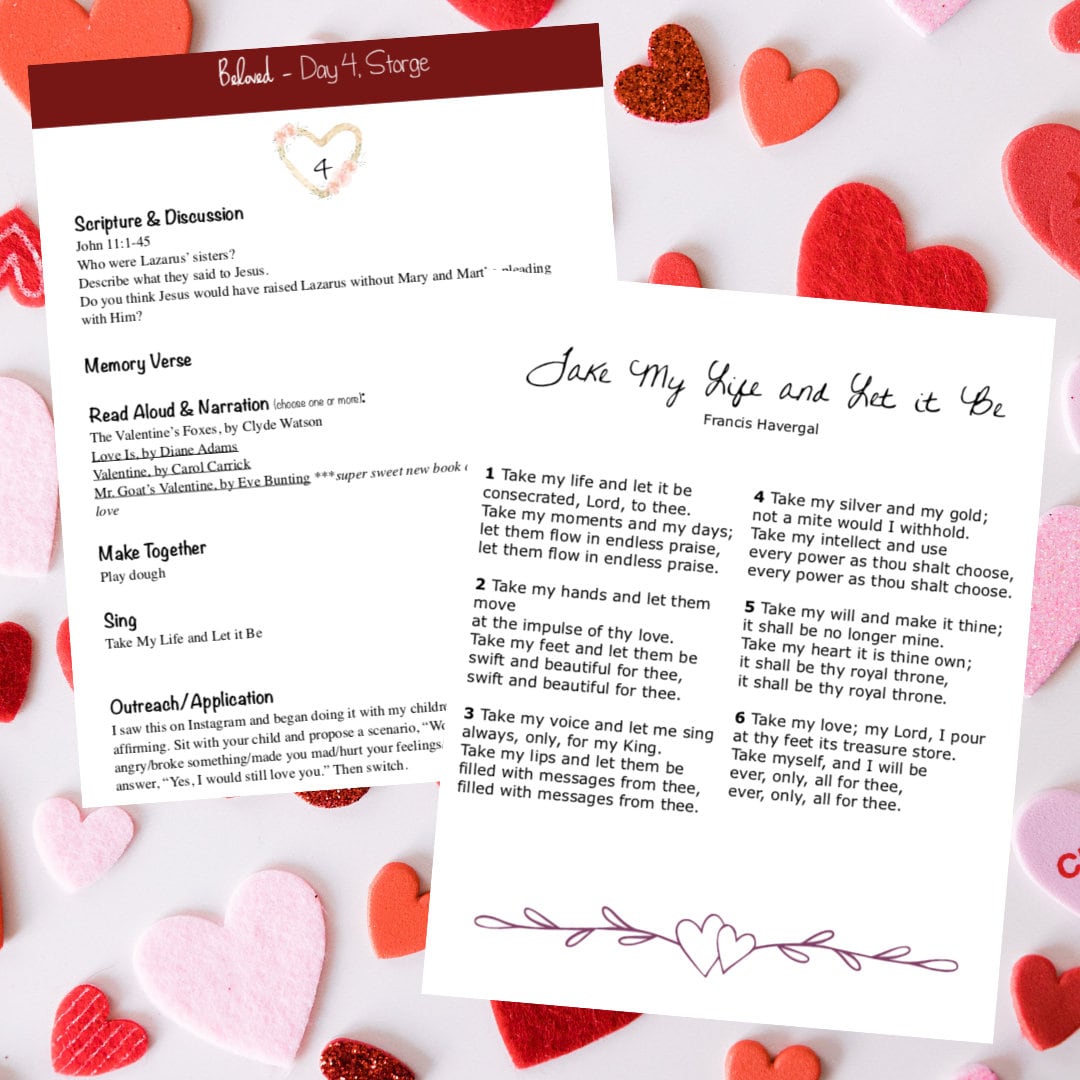 Beloved - Day 4, Storge
4
Scripture & Discussion
John 11:1-45
Who were Lazarus' sisters?
Describe what they said to Jesus.
Do you think Jesus would have raised Lazarus without Mary and Mart pleading
with Him?
Memory Verse
Read Aloud & Narration (choose one or more):
The Valentine's Foxes, by Clyde Watson
Love Is, by Diane Adams
Valentine, by Carol Carrick
Mr. Goat's Valentine, by Eve Bunting ***super sweet new book
love
Make Together
Play dough
Sing
Take My Life and Let it Be
Outreach/Application
I saw this on Instagram and began doing it with my
affirming. Sit with your child and propose a scenario,
angry/broke something/made you mad/hurt your feelings
answer, "Yes, I would still love you." Then switch.
Take My Life and Let it Be
Francis Havergal
1 Take my life and let it be
consecrated, Lord, to thee.
Take my moments and my days;
let them flow in endless praise,
let them flow in endless praise.
2 Take my hands and let them
move
at the impulse of thy love.
Take my feet and let them be
swift and beautiful for thee,
swift and beautiful for thee.
3 Take my voice and let me sing
always, only, for my King.
Take my lips and let them be
filled with messages from thee,
filled with messages from thee.
4 Take my silver and my gold;
not a mite would I withhold.
Take my intellect and use
every power as thou shalt choose,
every power as thou shalt choose.
5 Take my will and make it thine;
it shall be no longer mine.
Take my heart it is thine own;
it shall be thy royal throne,
it shall be thy royal throne.
6 Take my love; my Lord, I pour
at thy feet its treasure store.
Take myself, and I will be
ever, only, all for thee,
ever, only, all for thee.